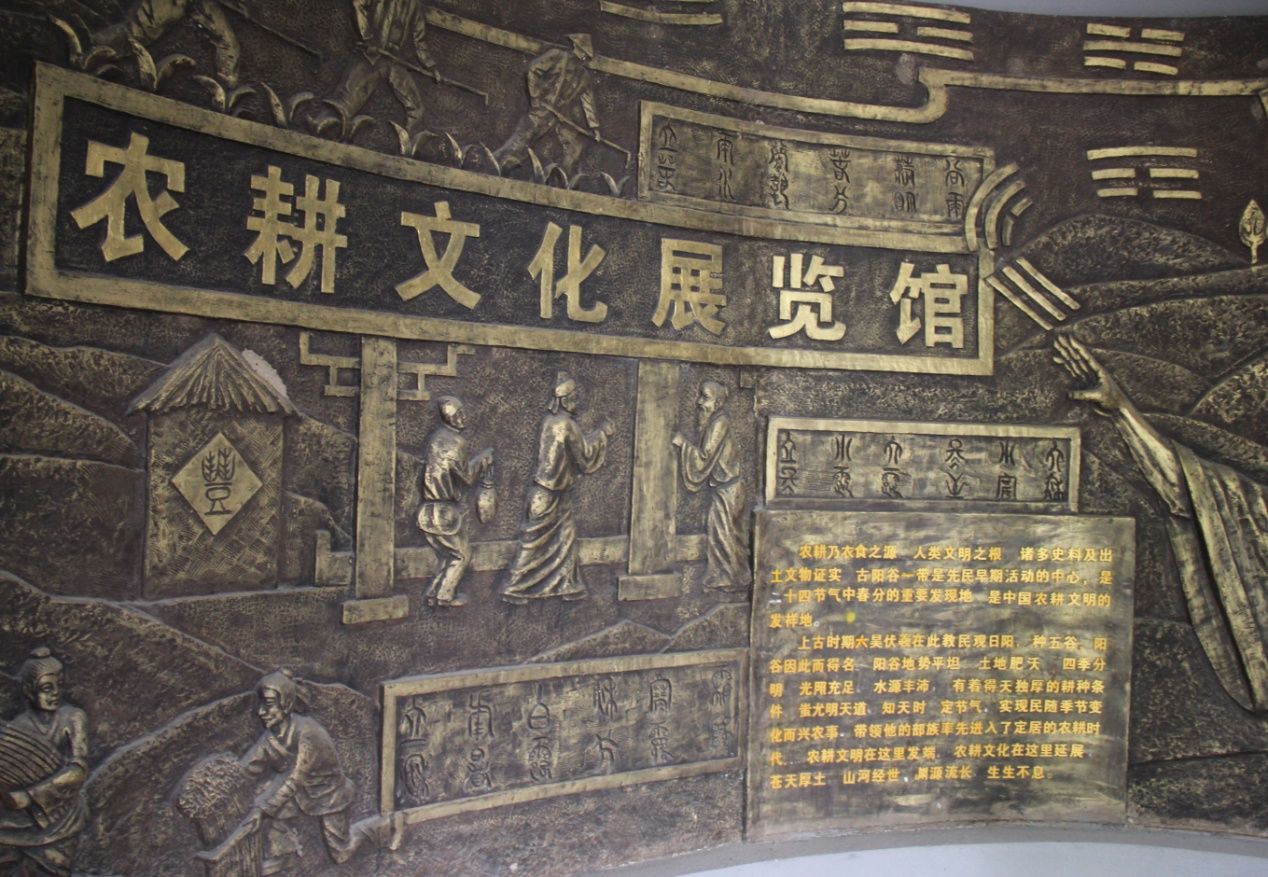 农耕文化展览馆
立春 雨水 驚蟄 春分 清明 谷雨
立冬 小雪 大雪 冬至 小寒 大寒
农耕乃衣食之源 人类文明之根 诸多史料及出
土文物证实 古阳谷一带是先民早期活动的中心，是
二十四节气中春分的重要发现地 是中国农耕文明的
发祥地。
上古时期大昊伏羲在此教民观日阳，种五谷 阳
谷因此而得名 阳谷地势平坦 土地肥沃 四季分
明 光照充足，水源丰沛，有着得天独厚的耕种条
件 蚩尤明天道 知天时 定节气，实现民随季节变
化而兴农事，带领他的部族率先进入了定居的农耕时
代. 农耕文明在这里发端 农耕文化在这里延展
苍天厚土 山河经世，渊源流长 生生不息。
立秋 處暑 白露 秋分 寒露 霜降